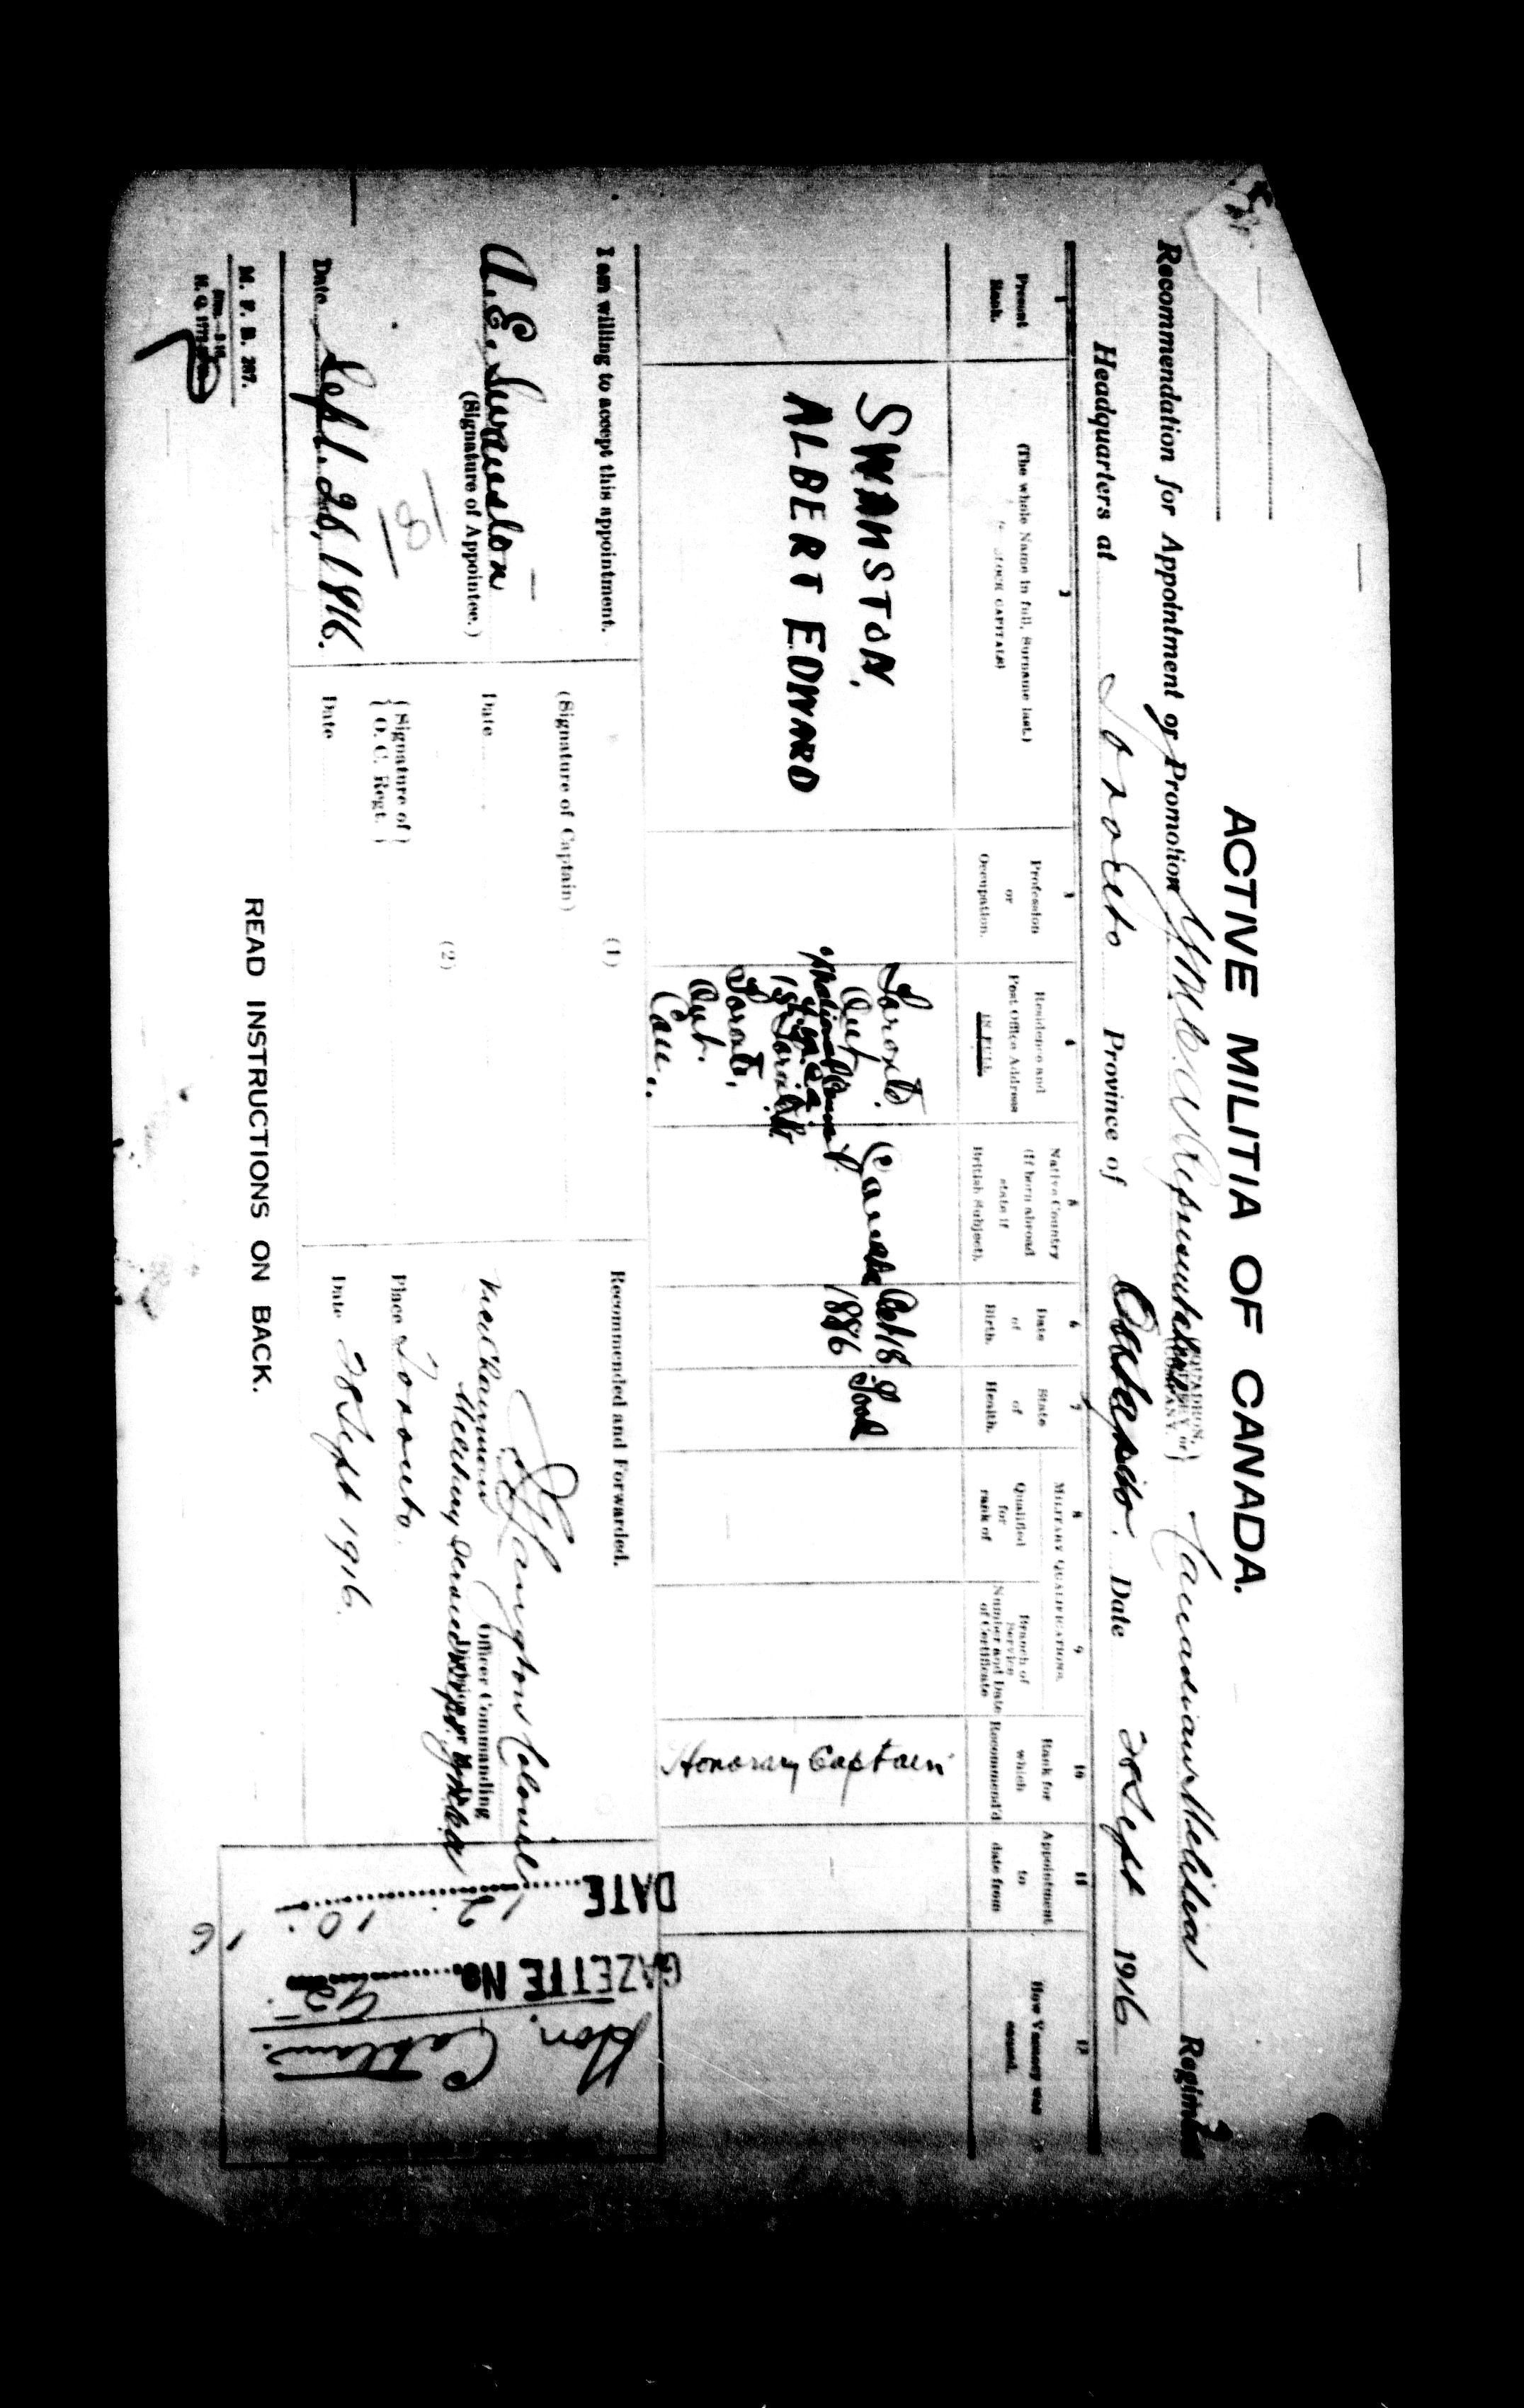 ACTIVE MILITIA OF CANADA.
Recommendation for Appointment or Promotion Y.M.C.A. Representative Canadian Militia Regiment
Headquarters at Toronto Province of Ontario. Date 28 Sept 1916
1
Present
Rank.
2
(The whole Name in full, Surname last.)
BLOCK CAPITALS)
3
Profession
or
Occupation.
4
Residence and
Post Office Address
IN FULL
5
Native Country
(If born abroad
state if
British Subject).
6
Date
of
Birth.
7
State
of
Health.
MILITARY QUALIFICATIONS.
8
Qualified
for
rank of
9
Branch of
Service
Number and Date
of Certificate
10
Rank for
which
Recommend'd
11
Appointment
to
date from
12
How Vacancy was
caused.
SWANSTON,
ALBERT EDWARD
Toronto.
Ont
National Council
Y.M.C.A.
15
Toronto,
Ont.
Can.
Canada
Oct 18
1886
Good
Honorary Captain
I am willing to accept this appointment.
A. E. Swanston
(Signature of Appointee.)
18
Date Sept. 28, 1916.
(1)
(Signature of Captain)
Date
(2)
{Signature of}
{O. C. Regt.}
Date
Recommended and Forwarded.
Colonel
Officer Commanding
Vice Chairman
Military Service Dept. Y.M.C.A.
Place Toronto.
Date 28 Sept 1916.
DATE 12 10 16
GAZETTE No. 42
Hon. Captain.
M. F. B. 287.
READ INSTRUCTIONS ON BACK.